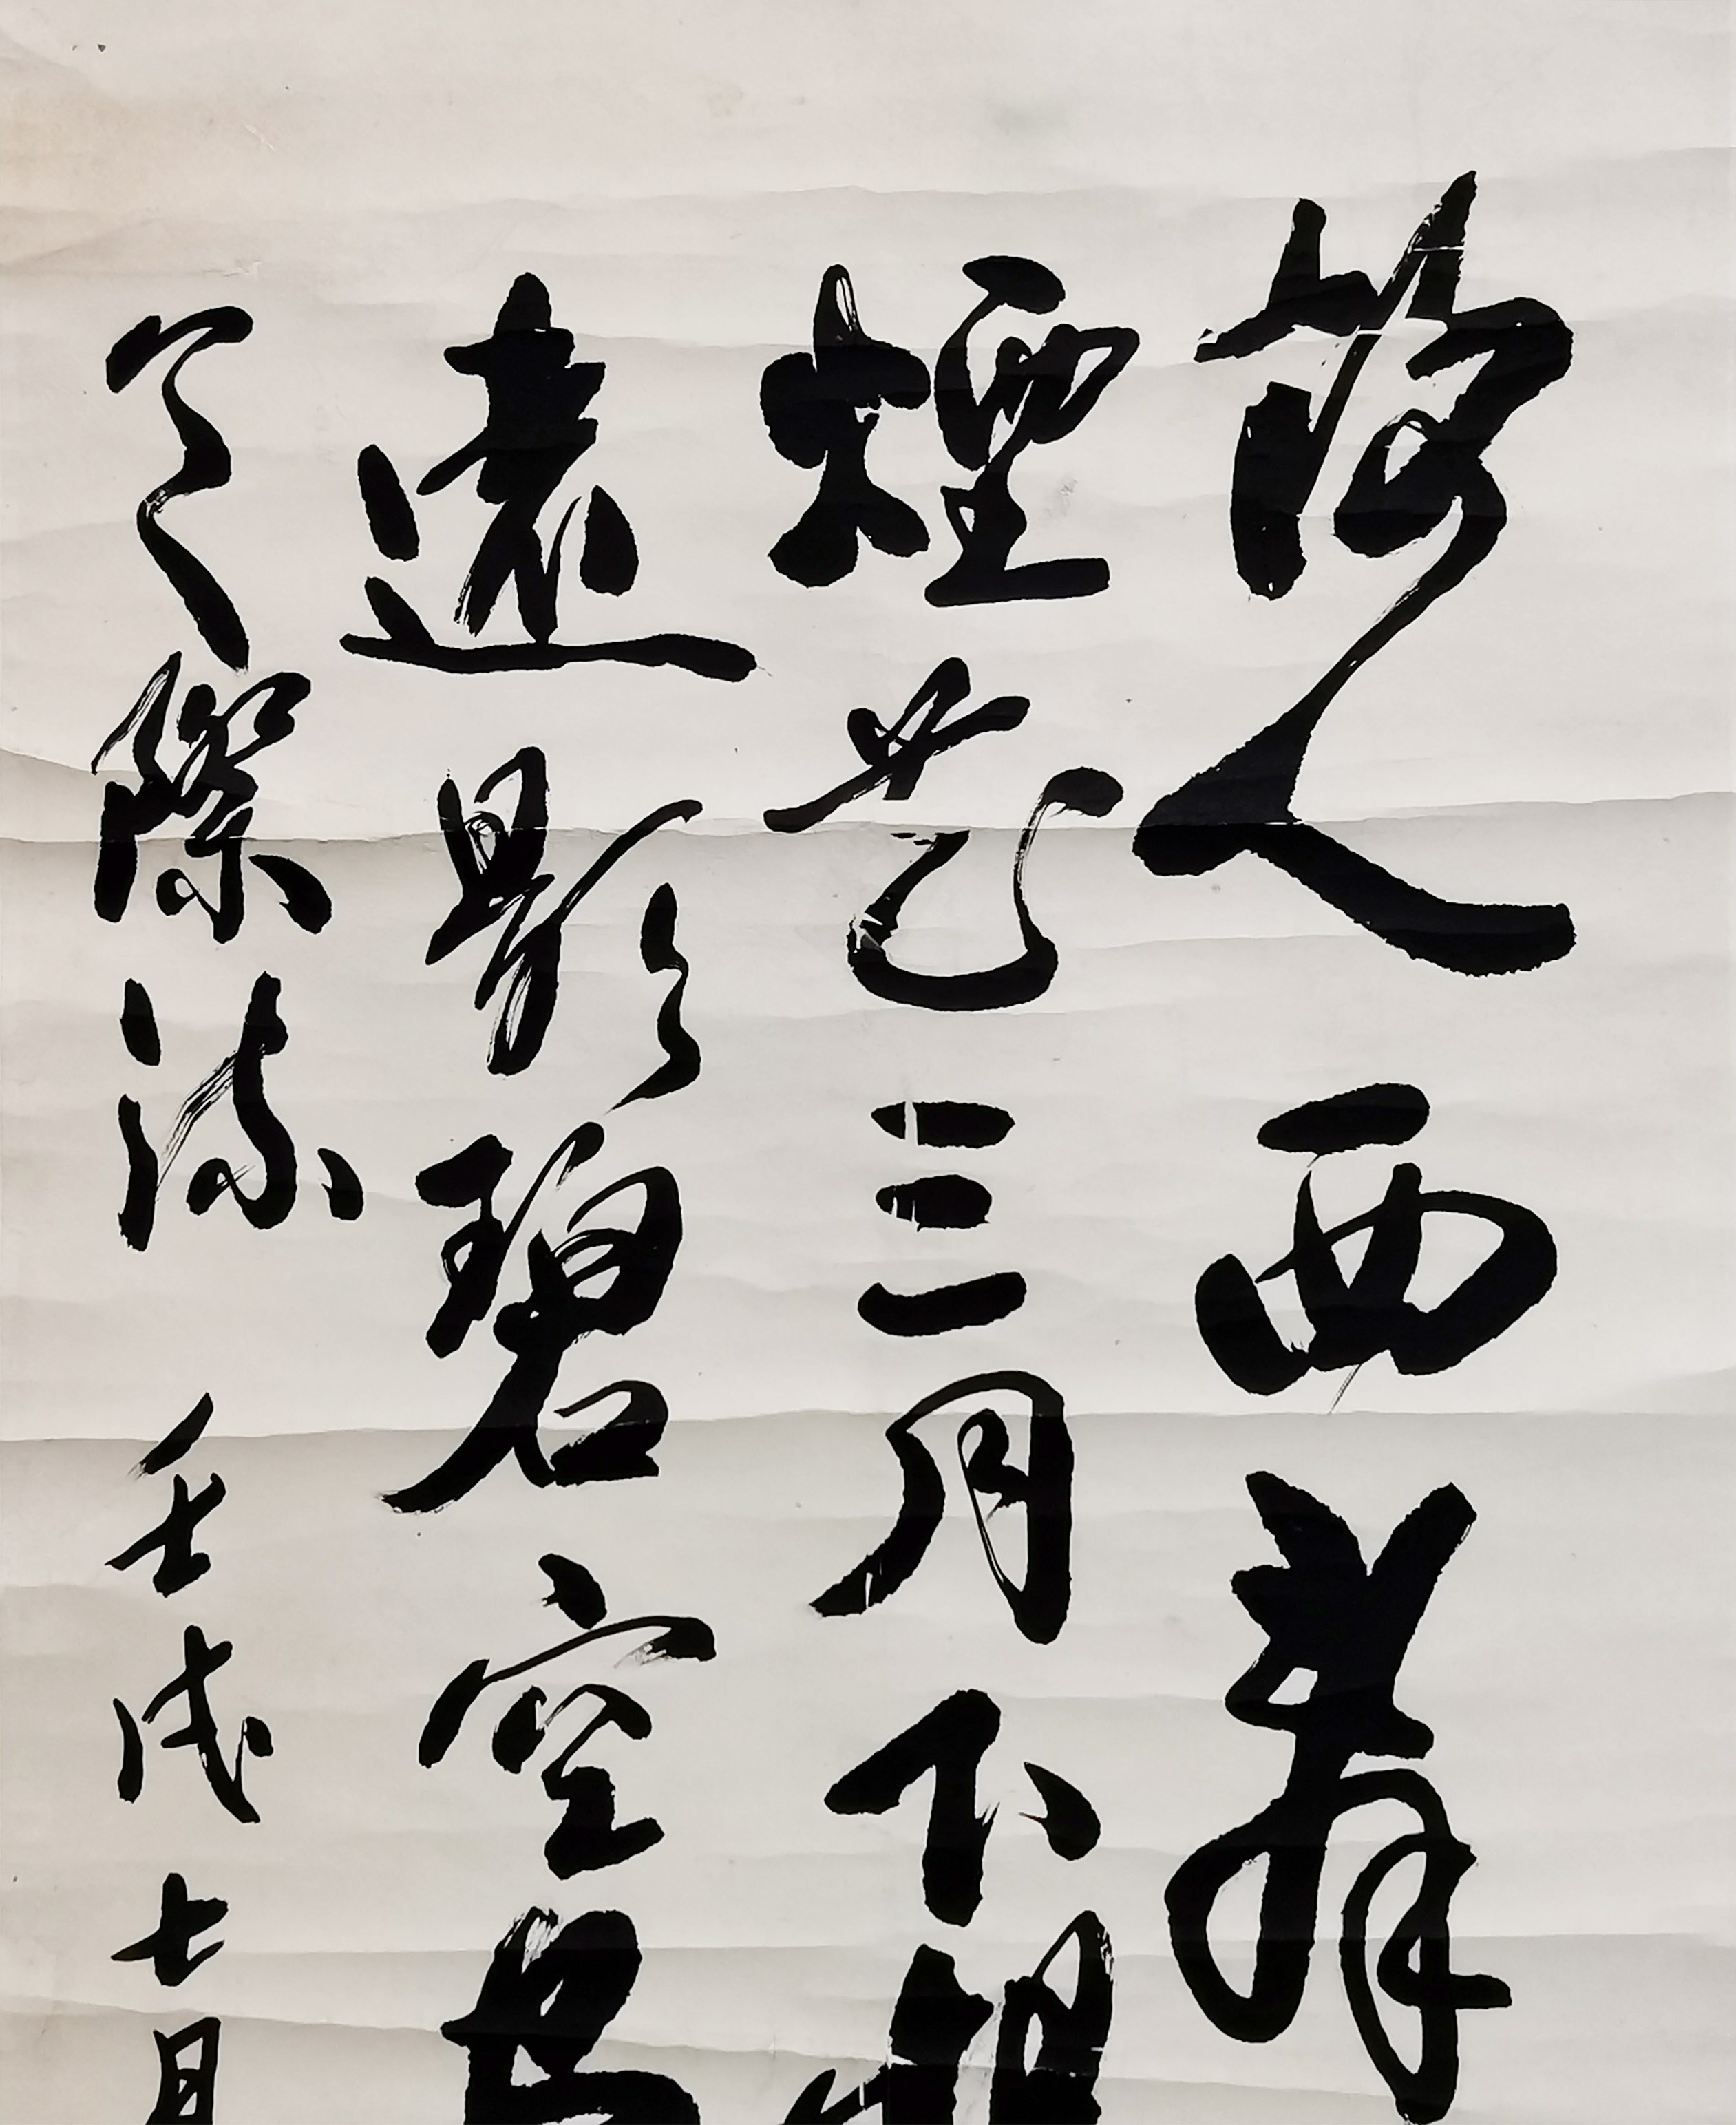 故人西辭
煙花三月下
遠影碧空
天際流 壬戌七月